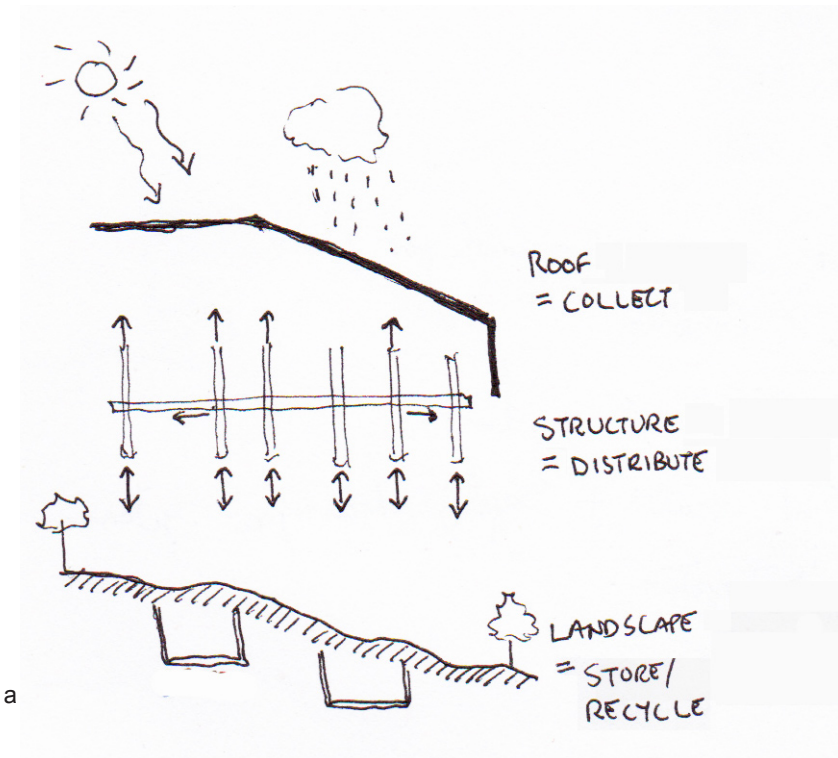 ROOF
= COLLECT
STRUCTURE
= DISTRIBUTE
LANDSCAPE
= STORE/
RECYCLE
a